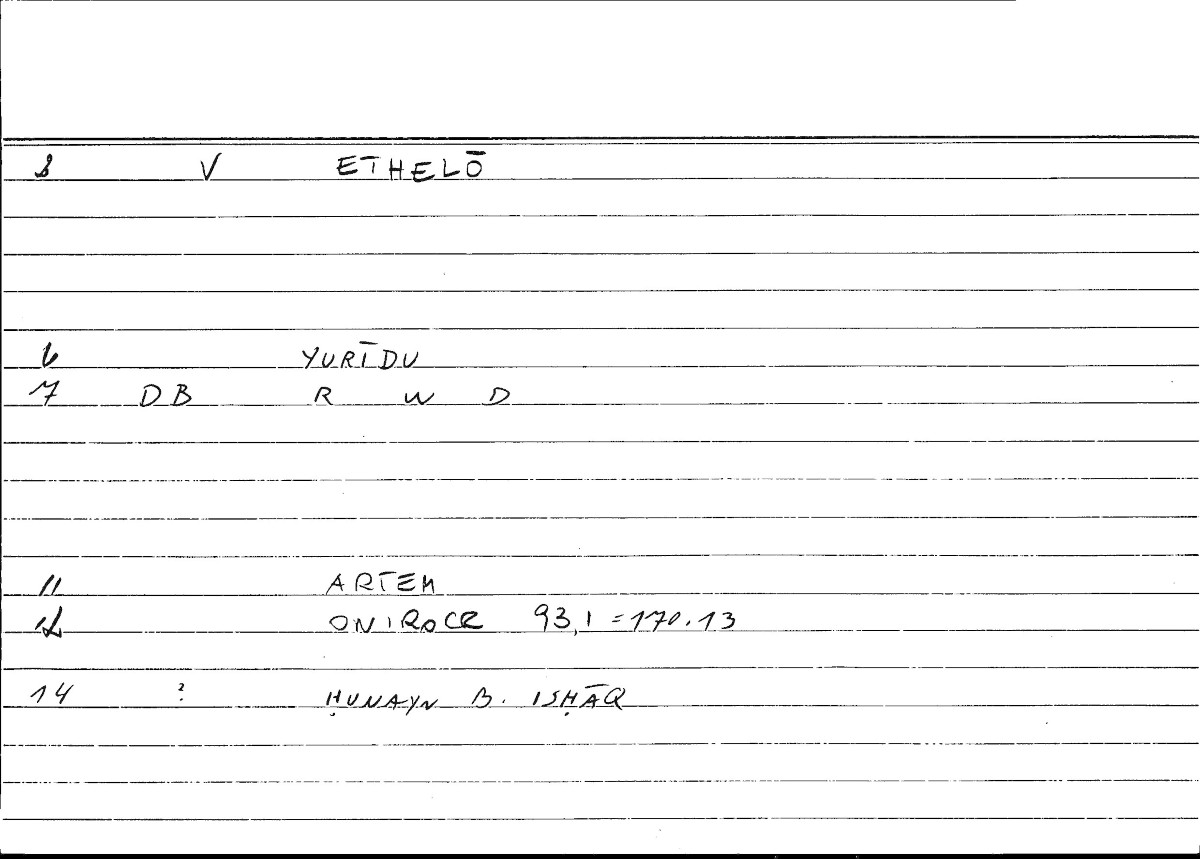 1 V ETHELŌ
6 YURĪDU
7 DB R W D
11 ARTEM
12 ONIROCR 93,1 = 170.13
14 ? ḤUNAYN B. ISḤĀQ